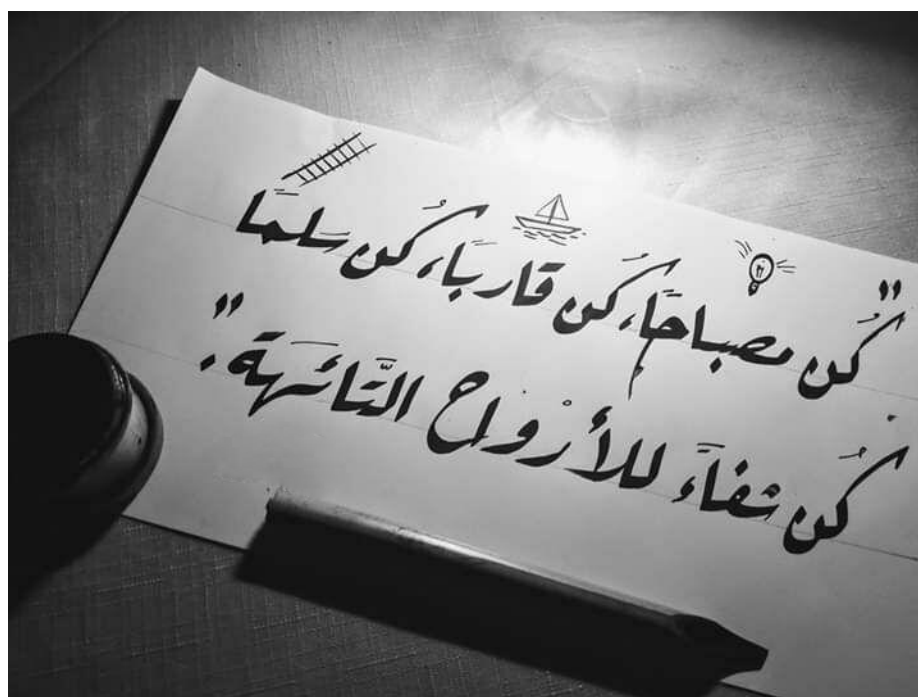 "كُن مصباحًا، كُن قاربًا، كُن سَلمًا
كُن شفاءً للأرْواح التَّائهَة."